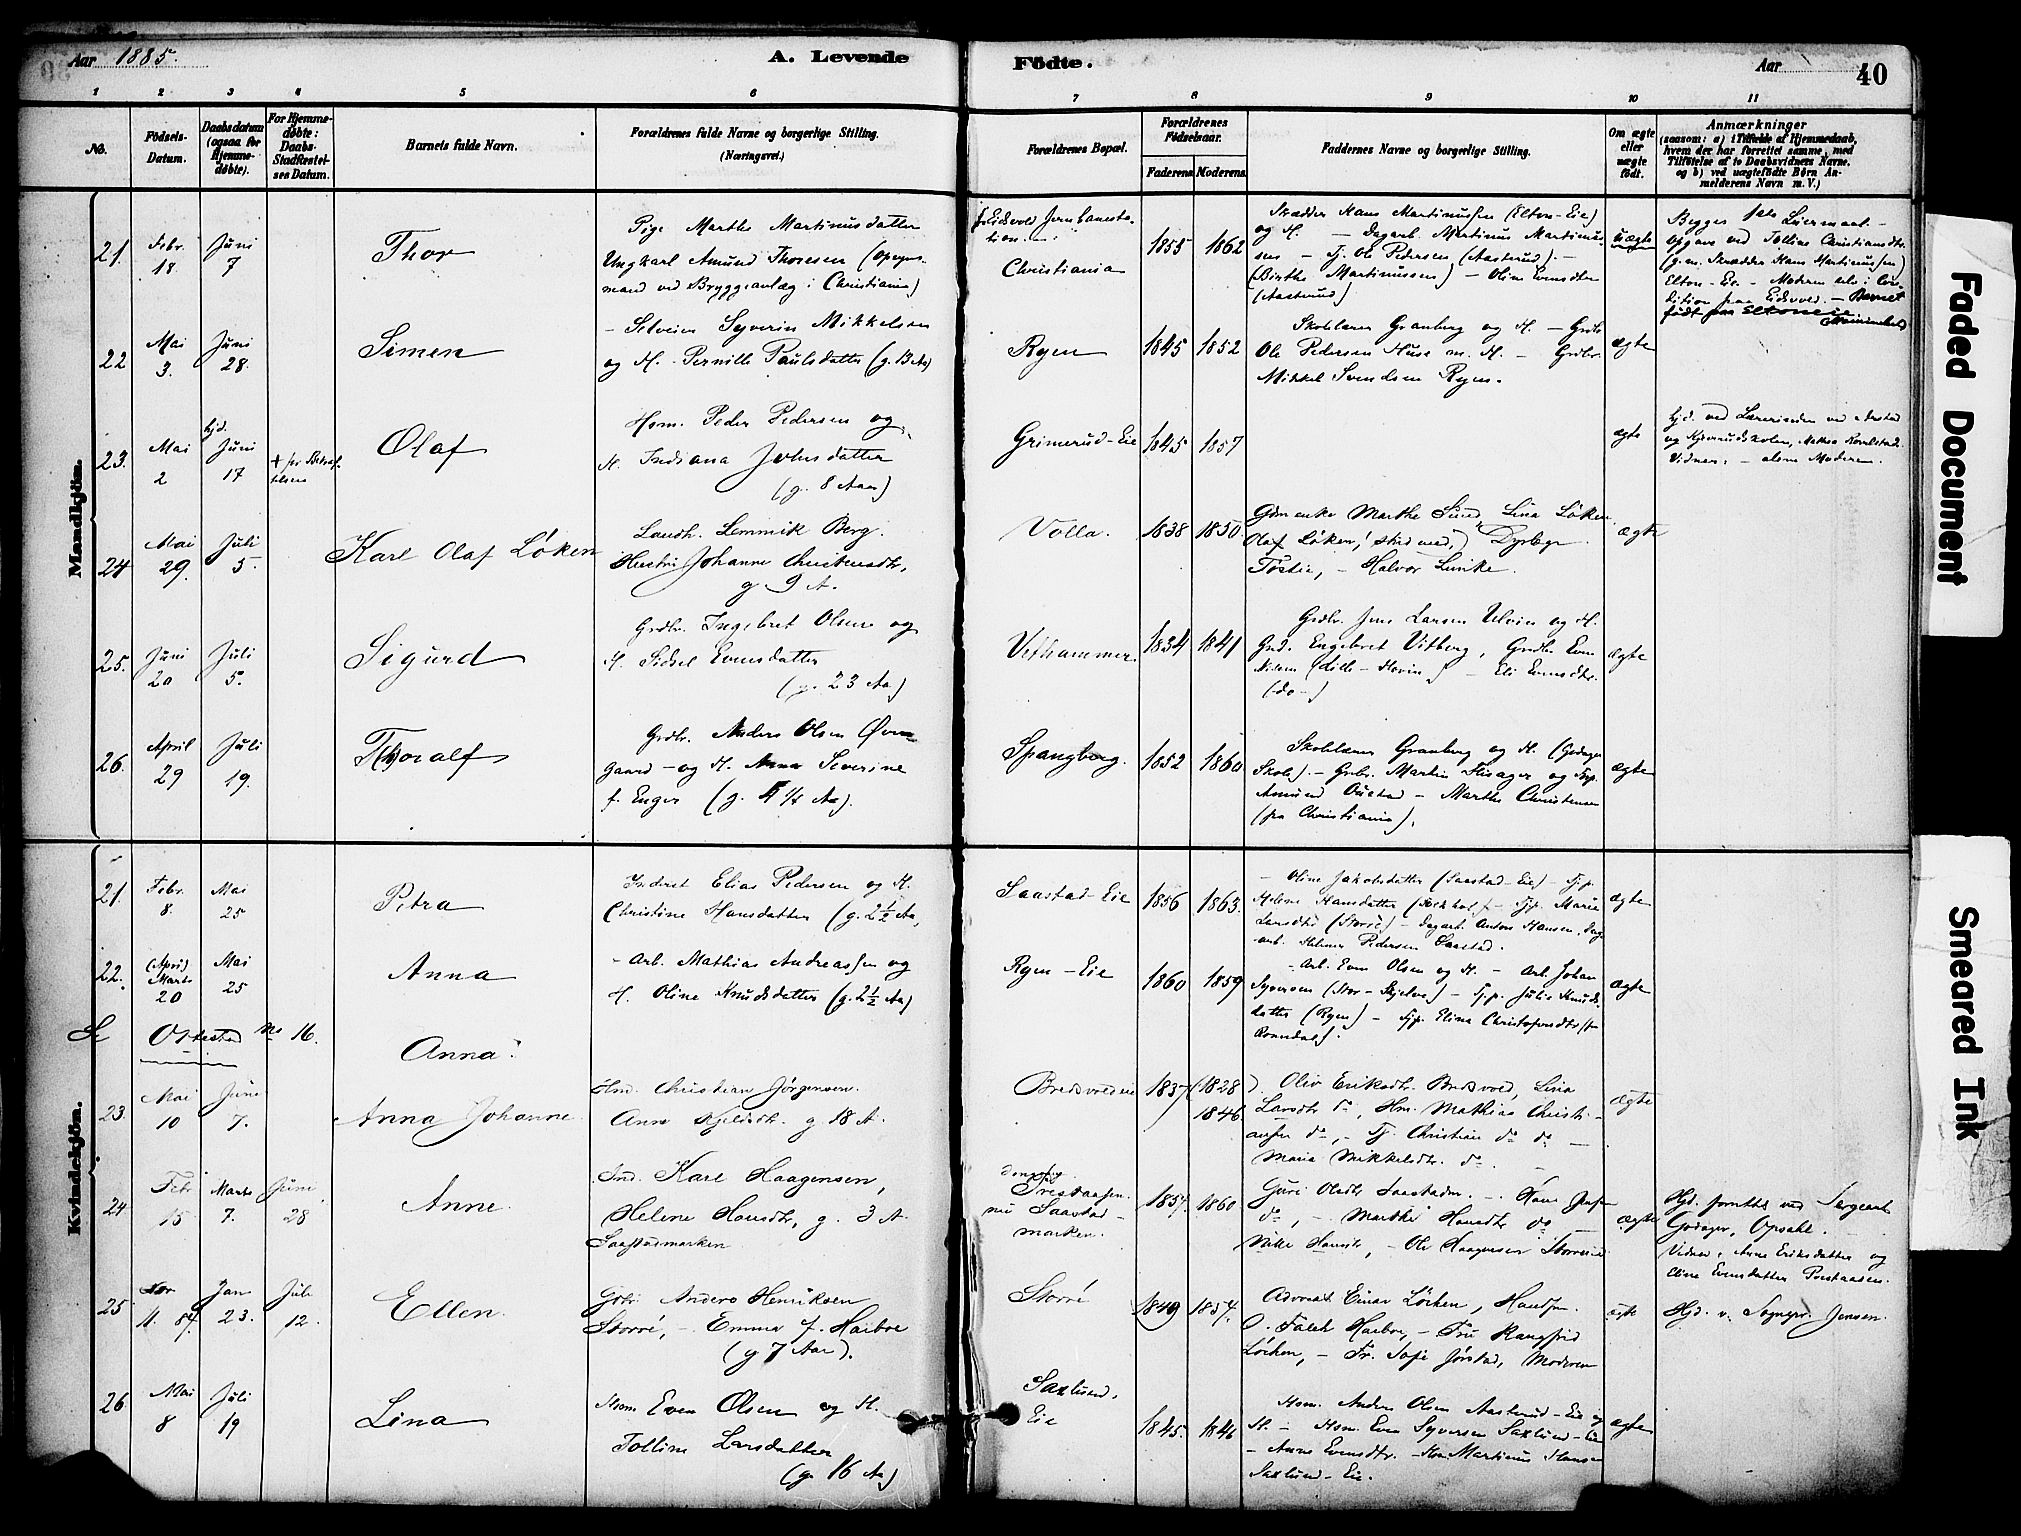 Aar 1885.
A. Levende
Fødte.
Aar
40
1 2 3 4 5 6 7 8 9 10 11
No.
Fødsels-
Datum.
Daabsdatum
(ogsaa for
Hjemme-
døbte).
For Hjemme-
døbte:
Daabs-
Stadfæstel-
ses Datum.
Barnets fulde Navn.
Forældrenes fulde Navne og borgerlige Stilling.
(Næringsvei.)
Forældrenes Bopæl.
Forældrenes
Fødselsaar.
Faderens Moderens
Faddernes Navne og borgerlige Stilling.
Om ægte
eller
uægte
født.
Anmærkninger
(saasom: a) i Tilfælde af Hjemmedaab,
hvem der har forrettet samme, med
Tilføielse af to Daabsvidners Navne.
og b) ved uægtefødte Børn An-
melderens Navn m. V.)
Mandkjøn.
21. Febr. 18 Juni 7
Thor
Pige Marthe Martinusdatter
Ungkarl Amund Thoresen (
mand ved Bryggeanlæg i Christiania)
Eidsvold Jernbanesta-
tion
Christiania
1855 1862
Skrædder Hans Martinussen (Elton-Eie)
og H. - Dagarb. Martinus Martinus-
sen - Tj. Ole Pedersen (Aasterud). -
(Birthe Martinussen) - Oline Evensdtr
(Aasterud)
uægte
Begges 1ste Leiermaal. -
Opgave ved Tolline Christiansdtr.
(g. m. Skrædder Hans Martinussen)
Elton-Eie - Moderen selv i Con-
dition paa Eidsvold. - Barnet
født paa Eltoneie
22 Mai 3. Juni 28.
Simen
- Selveier Syverin Mikkelsen
og H. Pernille Paulsdatter (g. 13 Aar)
Ryen
1845 1852
Skolelærer Granberg og H. - Grdbr.
Ole Pedersen Huse m. H. - Grdbr.
Mikkel Svendsen Ryen.
ægte
23. Mai 2 hjd. Juni 17
Olaf
Hsm. Peder Pedersen og
H. Indiana Johnsdatter
(g. 8 Aar)
Grimerud-Eie
1845 1857
ægte
hjd. ved Lærerinden ved
Vidner: - alene Moderen.
24 Mai 29. Juli 5
Karl Olaf Løken
Landh. Lemmik Berg.
Hustru Johanne Christensdtr,
g 9 A.
Volla.
1838 1850.
Gdmenke Marthe Sund, Lina Løken
Olaf Løken, stud. med., Dyrlæge
Töstie, - Halvor Lunke.
ægte
25. Juni 20 Juli 5.
Sigurd
Grdbr. Ingebret Olsen og
H. Sidsel Evensdatter
(g. 23 Aar)
Vethammer
1834 1841
Grdbr. Jens Larsen Ulvin og H.
Grd. Engebret Vitberg, Grdbr. Even
Nilsen (Lille-Hovin) - Eli Evensdtr.
(do-)
ægte
26. April 29 Juli 19.
Thoralf
Grdbr. Anders Olsen Øvre-
gaard - og H. Anna Severine
f. Enger (g. 4 1/4 Aar).
Spangberg.
1852 1860
Skolelærer Granberg og H. (Godager
Skole). - Grbr. Martin Flisager og
Amund Ouestad - Marthe Christensen
(fra Christiania).
ægte
Kvindekjøn.
21. Febr. 8. Mai 25
Petra
Inderst Elias Pedersen og H.
Christine Hansdatter (g. 2 1/2 Aar)
Saastad-Eie
1856 1863.
- Oline Jakobsdatter (Saastad-Eie) - Tjp.
Helene Hansdatter - Tjp. Marie
Larsdtr (Storre) - Dagarb. Anton Hansen, Dag-
arb. Helmer Pedersen Saastad.
ægte
22. (April) Marts 20 Mai 25
Anna
- Arb. Mathias Andreassen og
H. Oline Knudsdatter (g. 2 1/2 Aar)
Ryen-Eie
1860 1859
- Arb. Even Olsen og H. - Arb. Johan
Syversen (Stor-Skjelve) - Tj.p. Julie Knuds-
datter (Ryen) - Tjp. Elina Christophersdtr
Romedal).
ægte
Se Ottestad No 16.
Anna.
23. Mai 10 Juni 7.
Anna Johanne
Hmd. Christian Jørgensen.
Anne Kjeldsdtr. g 18 A.
Bredsvoldeie
1837 (1828) 1846
Oliv Eriksdtr. Bredsvold, Lina
Larsdtr do, Hm. Mathias Christi-
ansen do, - Tj. Christian do do -
Maria Mikkelsdtr. do.
ægte
24 Febr 15 Marts 7. Juni 28
Anne
Ind. Karl Haagensen,
Helene Hansdtr, g. 3 A.
Saastadmarken
dengang
Prestaasen
nu Saastad-
marken.
1857 1860
Guri Olsdtr Saastadm. - Hans Jensen
do, - Marthe Hansdtr do -
- Ole Haagensen Storreeie
ægte
Hjd. forrettet ved Sergeant
Godager, Opsahl.
Vidner, Anne Eriksdatter og
Eline Evensdatter Prestaasen.
25 11. 84. Jan 23. Juli 12.
Ellen
Gdbr. Anders Henriksen
Storré, - Emma f. Hoiboe
(g 7 Aar).
Storré
1849 1854.
Advocat Einar Löchen, Handsm.
O. Falch Hoiboe, - Fru Rangfrid
Löchen, - Fr. Sofie Jørstad, Moderen
ægte
Hjd. v. Sognepr. Jensen.
26 Mai 8 Juli 19
Lina
Hsm. Even Olsen og H.
Tolline Larsdatter
(g. 16 Aar)
Saxlund,
Eie
1845. 1846
Hsm. Anders Olsen Aasterud-Eie og
H. - Hsm. Even Syversen Saxlund-Eie
- Anne Evensdtr. - Hsm. Martinus Hansen
Saxlund-Eie.
ægte
Faded Document
Smeared Ink